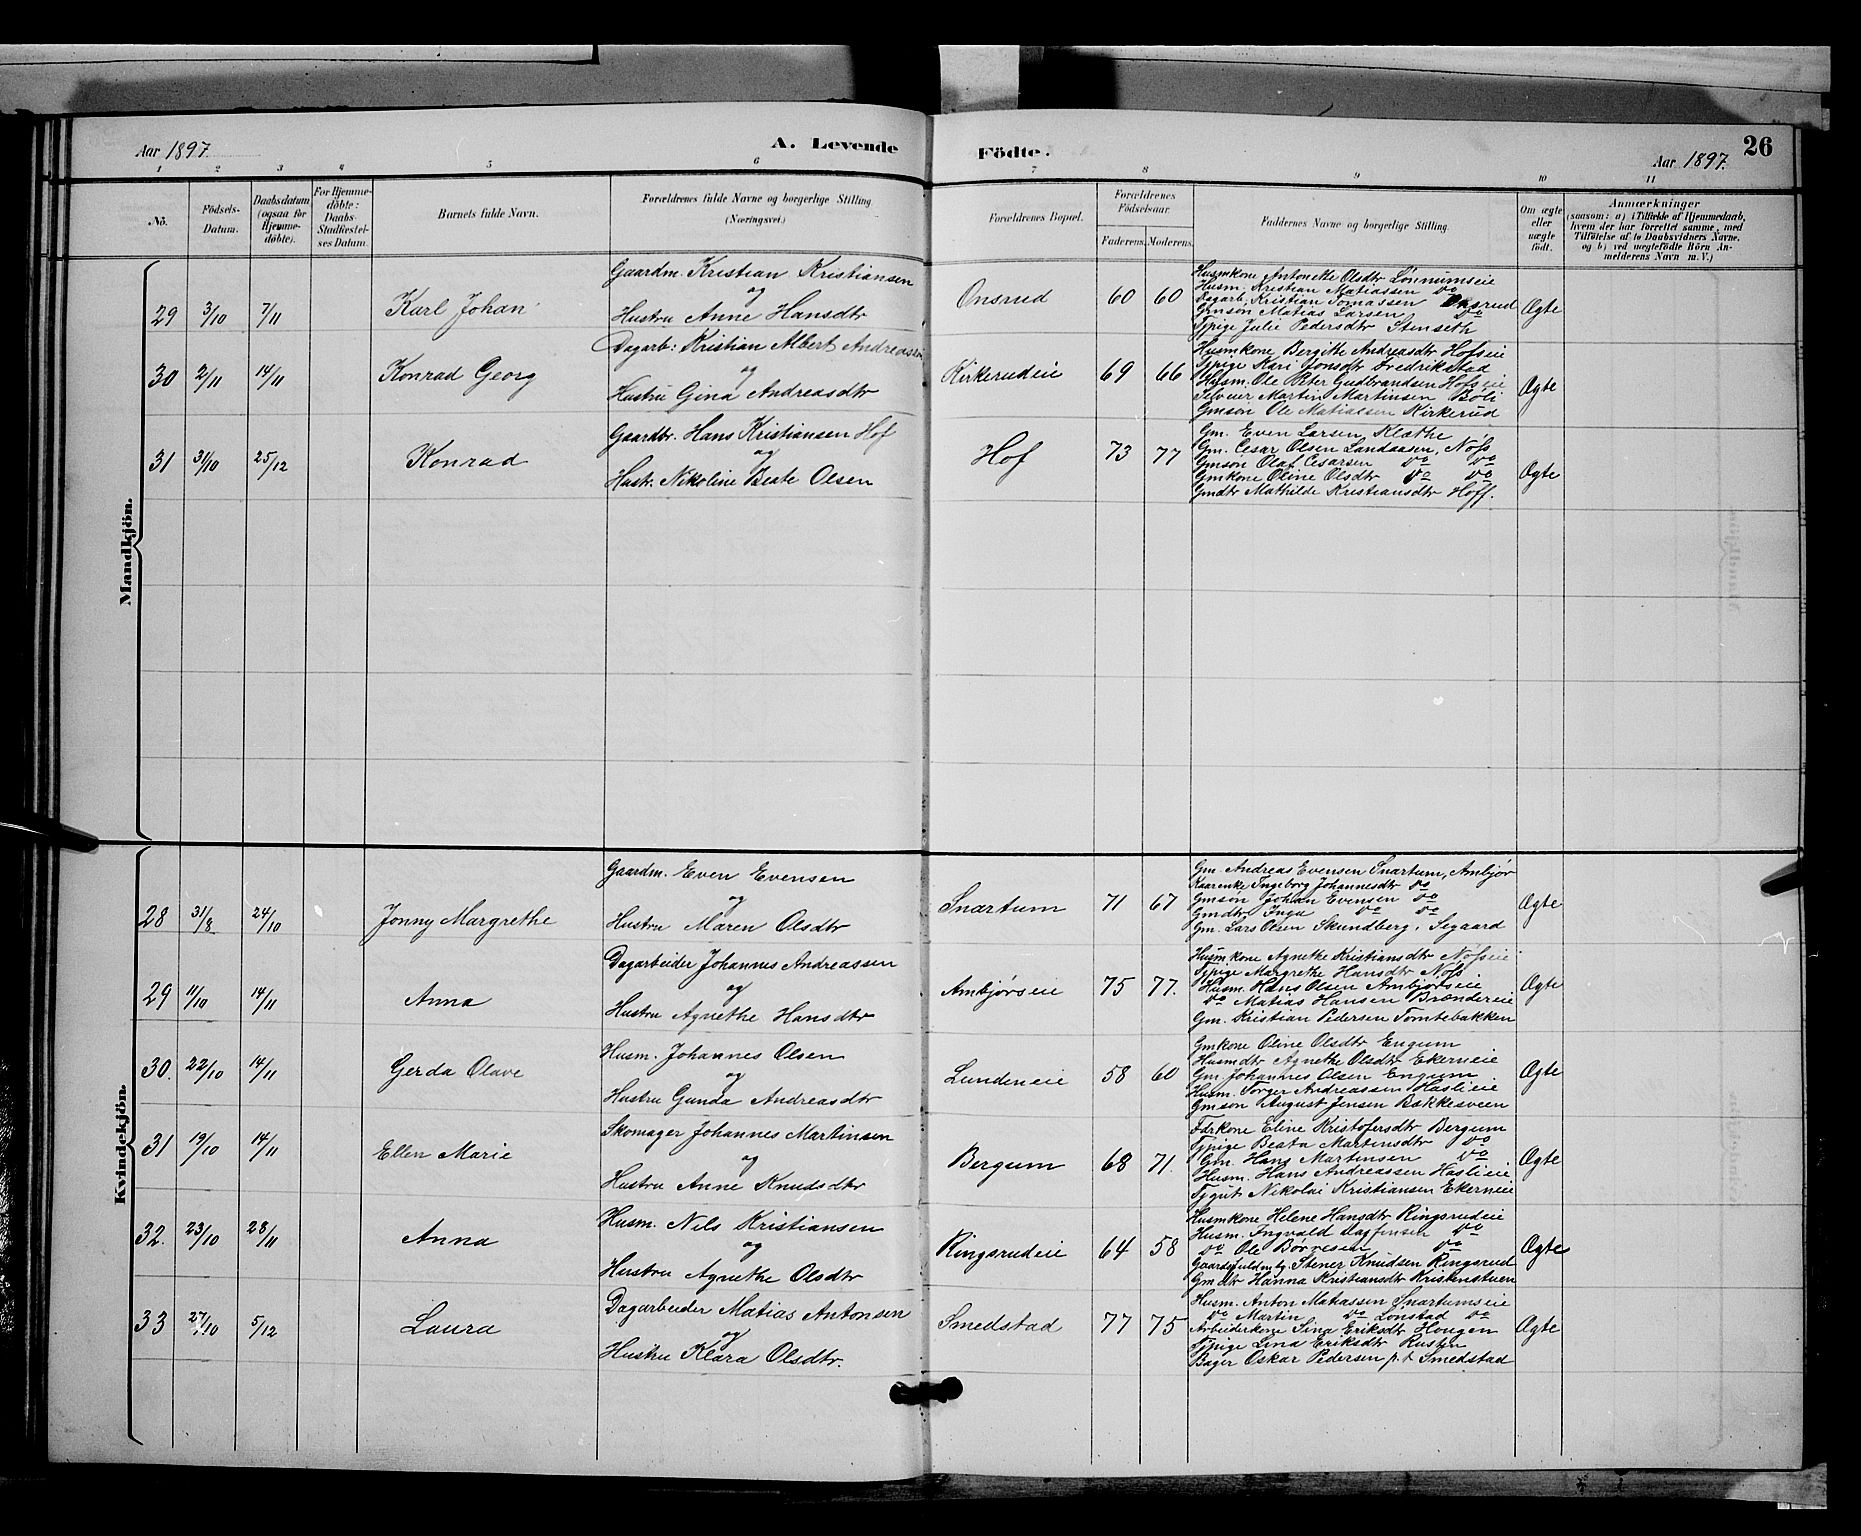 Aar 1897. A. Levende
Födte. Aar 1897. 26
1 2 3 4 5 6 7 8 9 10 11
No.
Födsels-Datum.
Daabsdatum (ogsaa for Hjemme-döbte).
For Hjemme-döbte: Daabs-Stadfæstel-ses Datum.
Barnets fulde Navn.
Forældrenes fulde Navne og borgerlige Stilling (Næringsvei.)
Forældrenes Bopæl.
Forældrenes Födselsaar.
Faderens. Moderens.
Faddernes Navne og borgerlige Stilling.
Om ægte eller uægte födt.
Anmærkninger
(saasom: a) i Tilfælde af Hjemmedaab,
hvem der har forrettet samme, med
Tilföielse af to Daabsvidners Navne,
og b) ved uægtefödte Börn An-
melderens Navn m. V.)
Mandkjön.
29 3/10 7/11 Karl Johan
Gaardm. Kristian Kristiansen
og
Hustru Anne Hansdtr
Onsrud 60 60
Husmkone Antonette Olsdtr Lønnumseie
Husm. Kristian Matiassen do
Dagarb. Kristian Tomassen Onsrud
Gmsøn Matias Larsen do
Tjpige Julie Pedersdtr Stenseth
Ægte
30 2/11 14/11 Konrad Georg
Dagarb: Kristian Albert Andreassen
og
Hustru Gina Andreasdtr
Kirkerudeie 69 66
Husmkone Bergitte Andreasdtr Hofseie
Tjpige Kari Jonsdtr Fredrikstad
Husm. Ole Peter Gudbrandsen Hofseie
Selveier Martin Martinsen Bøli
Gmsøn Ole Matiassen Kirkerud
Ægte
31 31/10 25/12 Konrad
Gaardbr. Hans Kristiansen Hof
og
Hustr. Nikoline Beate Olsen
Hof 73 77
Gm. Even Larsen Klæthe
Gm. Cesar Olsen Landaasen, Nøfs
Gmsøn Olaf Cesarsen do do
Gmkone Oline Olsdtr do do
Gmdtr Mathilde Kristiansdtr Hoff.
Ægte
Kvindekjön.
28 31/8 24/10 Jonny Margrethe
Gaardm. Even Evensen
og
Hustru Maren Olsdtr
Snartum 71 67
Gm. Andreas Evensen Snartum, Ambjør
Kaarenke Ingeborg Johannesdtr do
Gmsøn Johan Evensen do
Gmdtr Inga do do
Gm. Lars Olsen Skundberg, Segaard
Ægte
29 11/10 14/11 Anna
Dagarbeider Johannes Andreassen
og
Hustru Agnethe Hansdtr
Ambjørseie 75 77.
Husmkone Agnethe Kristiansdtr Nøfseie
Tjpige Margrethe Hansdtr Nøfs
Husm. Hans Olsen Ambjørseie
do Matias Hansen Brændereie
Gm. Kristian Pedersen Tomtebakken
Ægte
30. 22/10 14/11 Gerda Olave
Husm. Johannes Olsen
og
Hustru Gunda Andreasdtr
Lundeneie 58 60
Gmkone Oline Olsdtr Engum
Husmdtr Agnethe Olsdtr Ekerneie
Gm Johannes Olsen Engum
Husm. Torger Andreassen Haslieie
Gmsøn August Jensen Bakkesveen
Ægte
31 19/10 14/11 Ellen Marie
Skomager Johannes Martinsen
og
Hustru Anne Knudsdtr
Bergum 68 71.
Fdrkone Eline Kristofersdtr Bergum
Tjpige Beata Martinsdtr do
Gm. Hans Martinsen do
Husm. Hans Andreassen Haslieie
Tjgut Nikolai Kristiansen Ekerneie
Ægte
32. 23/10 28/11 Anna
Husm. Nils Kristiansen
og
Hustru Agnethe Olsdtr
Ringsrudeie 64 58
Husmkone Helene Hansdtr Ringsrudeie
Husm. Ingvald Dagfinsen do
do Ole Børresen do
Gaardsfuldm. Stener Knudsen Ringsrud
Gmdtr Hanna Kristiansdtr Kristenstuen
Ægte
33 27/10 5/12 Laura
Dagarbeider Matias Antonsen
og
Hustru Klara Olsdtr.
Smedstad 77 75
Husm. Anton Matiassen Snartumseie
do Martin do Lonstad do
Arbeiderkone Sina Eriksdtr Hougen
Tjpige Lina Eriksdtr Rustjn
Bager Oskar Pedersen p.t. Smedstad
Ægte